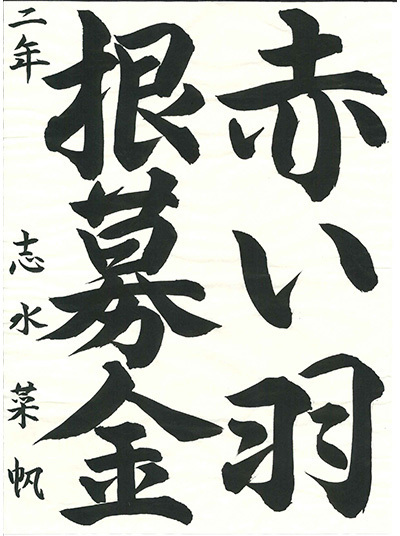 赤い羽
根募金
二年 志水菜帆